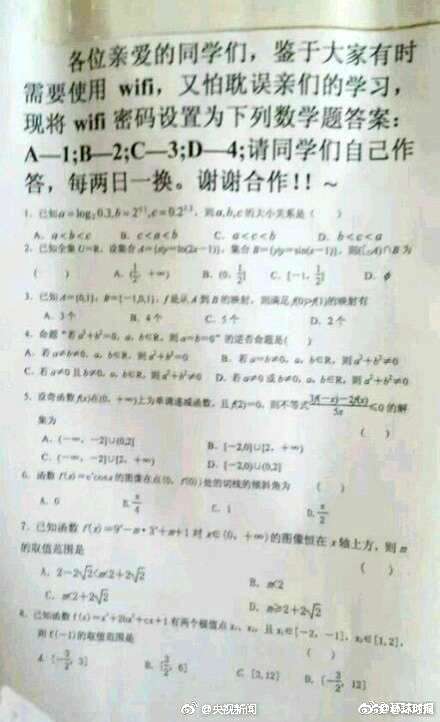 各位亲爱的同学们，鉴于大家有时
需要使用 wifi，又怕耽误亲们的学习，
现将 wifi 密码设置为下列数学题答案：
A—1;B—2;C—3;D—4;请同学们自己作
答，每两日一换。谢谢合作！！～
1. 已知a=log₂0.3,b=2^0.1,c=0.2^1.3，则a,b,c的大小关系是（ ）
A. a<b<c B. c<a<b C. a<c<b D. b<c<a
2. 已知全集U=R，设集合A={x|y=ln(2x−1)}，集合B={y|y=sin(x−1)}，则(∁ᵤA)∩B为
（ ） A. (1/2, +∞) B. (0, 1/2] C. [−1, 1/2] D. ϕ
3. 已知A={0,1}，B={−1,0,1}，f是从A到B的映射，则满足f(0)>f(1)的映射有
A. 3个 B. 4个 C. 5个 D. 2个
4. 命题“若a²+b²=0，a，b∈R，则a=b=0”的逆否命题是( )
A. 若a≠b≠0，a，b∈R，则a²+b²=0 B. 若a=b≠0，a，b∈R，则a²+b²≠0
C. 若a≠0且b≠0，a，b∈R，则a²+b²≠0 D. 若a≠0或b≠0，a，b∈R，则a²+b²≠0
5. 设奇函数f(x)在(0，+∞)上为单调递减函数，且f(2)=0，则不等式(3f(−x)−2f(x))/5x≤0的解
集为 ( )
A. (−∞，−2]∪(0,2] B. [−2,0]∪[2，+∞)
C. (−∞，−2]∪[2，+∞) D. [−2,0)∪(0,2]
6. 函数f(x)=eˣcosx的图像在点(0，f(0))处的切线的倾斜角为 ( )
A. 0 B. π/4 C. 1 D. π/2
7. 已知函数f(x)=9ˣ−m·3ˣ+m+1对x∈(0，+∞)的图像恒在x轴上方，则m
的取值范围是 ( )
A. 2−2√2<m<2+2√2 B. m<2
C. m<2+2√2 D. m≥2+2√2
8. 已知函数f(x)=x³+2bx²+cx+1有两个极值点x₁，x₂，且x₁∈[−2，−1]，x₂∈[1,2]，
则f(−1)的取值范围是 ( )
A. [−3/2，3] B. [3/2，6] C. [3,12] D. [−3/2，12]
@央视新闻
@环球时报